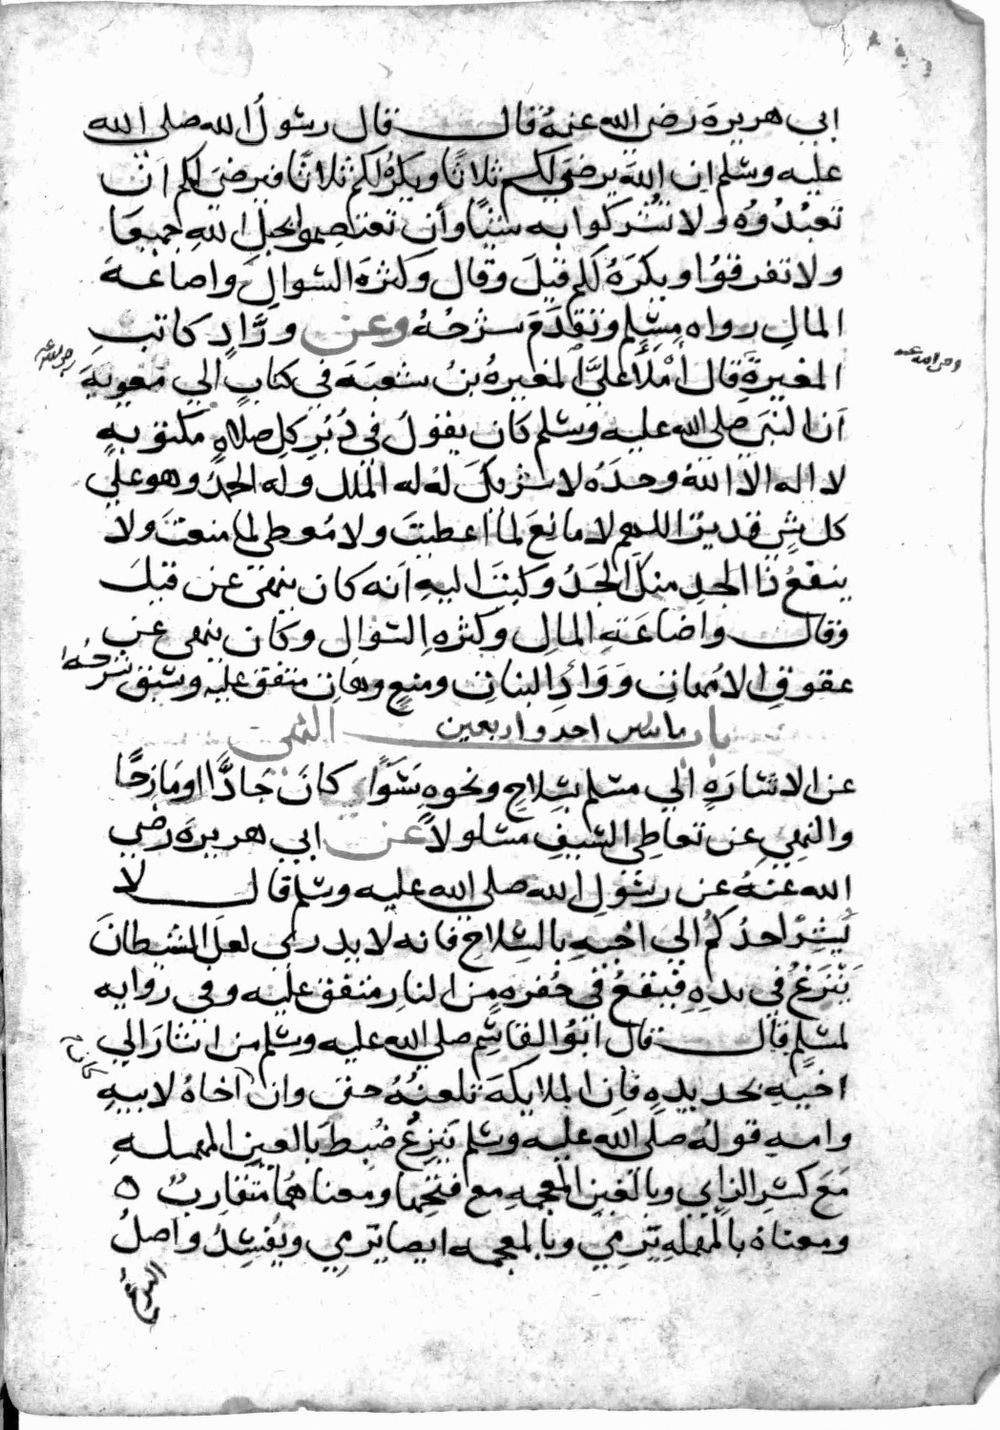 ابي هريرة رضي الله عنه قال قال رسولُ الله صلى الله
عليه وسلم ان الله يرضى لكم ثلاثًا ويكرهُ لكم ثلاثًا فيرضى لكم ان
تعبدُوُه ولا تُشركوا به شيًا وأن تعتصِموا بحبلِ اللهِ جميعًا
ولا تفرقوُا ويكرَهُ لكم قيلَ وقال وكثرَة السُّوالِ واضاعة
المالِ رواه مسلم وتقدَّمَ شرْحُهُ وعن ورَّادٍ كاتب
المغيرةِ قال أَمْلَأَ عليَّ المغيرةُ بنُ شعبَةَ في كتابٍ الي معويةَ رضي الله عنه
أن النبيَ صلى الله عليه وسلم كان يقولُ في دُبُرِ كلِ صلاةٍ مكتوبةٍ
لا اله الا اللهُ وحدَهُ لا شريكَ لهُ له الملك وله الحمدُ وهو علي
كل شيٍ قديرٌ اللهم لا مانِعَ لما اعطيتَ ولا مُعطي لما منعتَ ولا
ينفعُ ذا الجدِ منكَ الجَدُ وكتبَ اليهِ انه كان ينهى عن قيلَ
وقال واضاعَةِ المالِ وكثرةِ السُّوالِ وكان ينهي عن
عقوقِ الامهاتِ وَوَأدِ البناتِ ومنعٍ وهاتِ متفق عليه وسبقَ شرحُه
باب مايتين احد واربعين النهي
عن الاشارَةِ الي مسلمٍ بسلاحٍ ونحوِهِ سَوَآءً كانَ جَادًّا اومَازِحًا
والنهيِ عن تعاطِي السَّيفِ مسلولاً عن ابي هريرةَ رضي
الله عنهُ عن رسُولِ الله صلى الله عليه وسلم قال لا
يُشِرْ احدُكُم الي اخيهِ بالسِّلاحِ فانه لا يدري لعلَ الشيطانَ
يَنْزَعُ في يدِهِ فيقعُ في حُفرةٍ من النارِ متفق عليه وفي روايه
لمسلمٍ قال قال ابوُ القاسِمِ صلى الله عليه وسلم من اشارَ الي
اخيهِ بحديدةٍ فانَ الملايكةَ تلعنُهُ حتى وان كان اخاهُ لابيهِ
وامهِ قولهُ صلى الله عليه وسلم يَنزِعُ ضُبطَ بالعينِ المهملهِ
مَعَ كسْرِ الزاي وبالغينِ المعجمهِ مع فتحِها ومعناهُما متقارِبٌ ٥
ومعناهُ بالمهملهِ يَرْمِي وبالمعجمه ايضا يَرمِي ويُفسِدُ واصلُ
النزع
رضي الله عنه